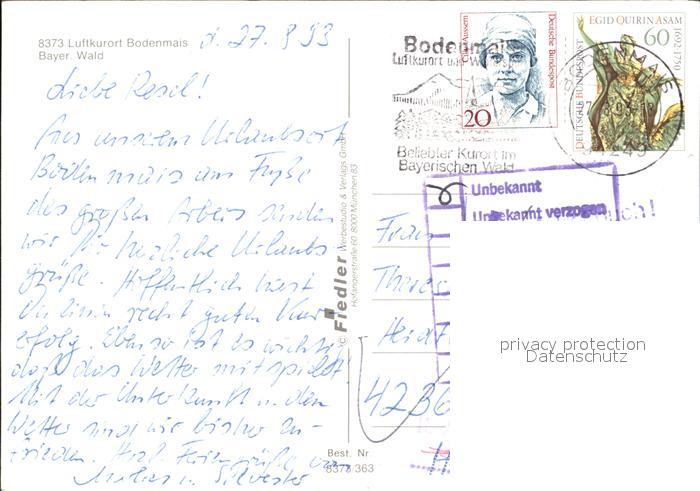 8373 Luftkurort Bodenmais
Bayer. Wald
d. 27. 8 93
Liebe Resel!
Aus unserem Urlaubsort
Bodenmais am Fuße
des großen Arbers senden
wir Dir herzliche Urlaubs-
grüße. Hoffentlich hast
Du einen recht guten Kur-
erfolg. Ebenso ist es wichtig
daß das Wetter mitspielt
Mit der Unterkunft u. dem
Wetter sind wir bisher zu-
frieden. Herzl. Feriengrüße von
u. Silvester
© Fiedler Werbestudio & Verlags GmbH
Hofangerstraße 60 8000 München 83
Best. Nr.
8373/363
Bodenmais
Luftkurort und W
Beliebter Kurort im
Bayerischen Wald
Cilly Aussem
Deutsche Bundespost
20
EGID QUIRIN ASAM
1692-1750
60
DEUTSCHE BUNDESPOST
BODENMAIS
94249
Unbekannt
Unbekannt verzogen
ich!
Frau
There
Heid
4236
privacy protection
Datenschutz